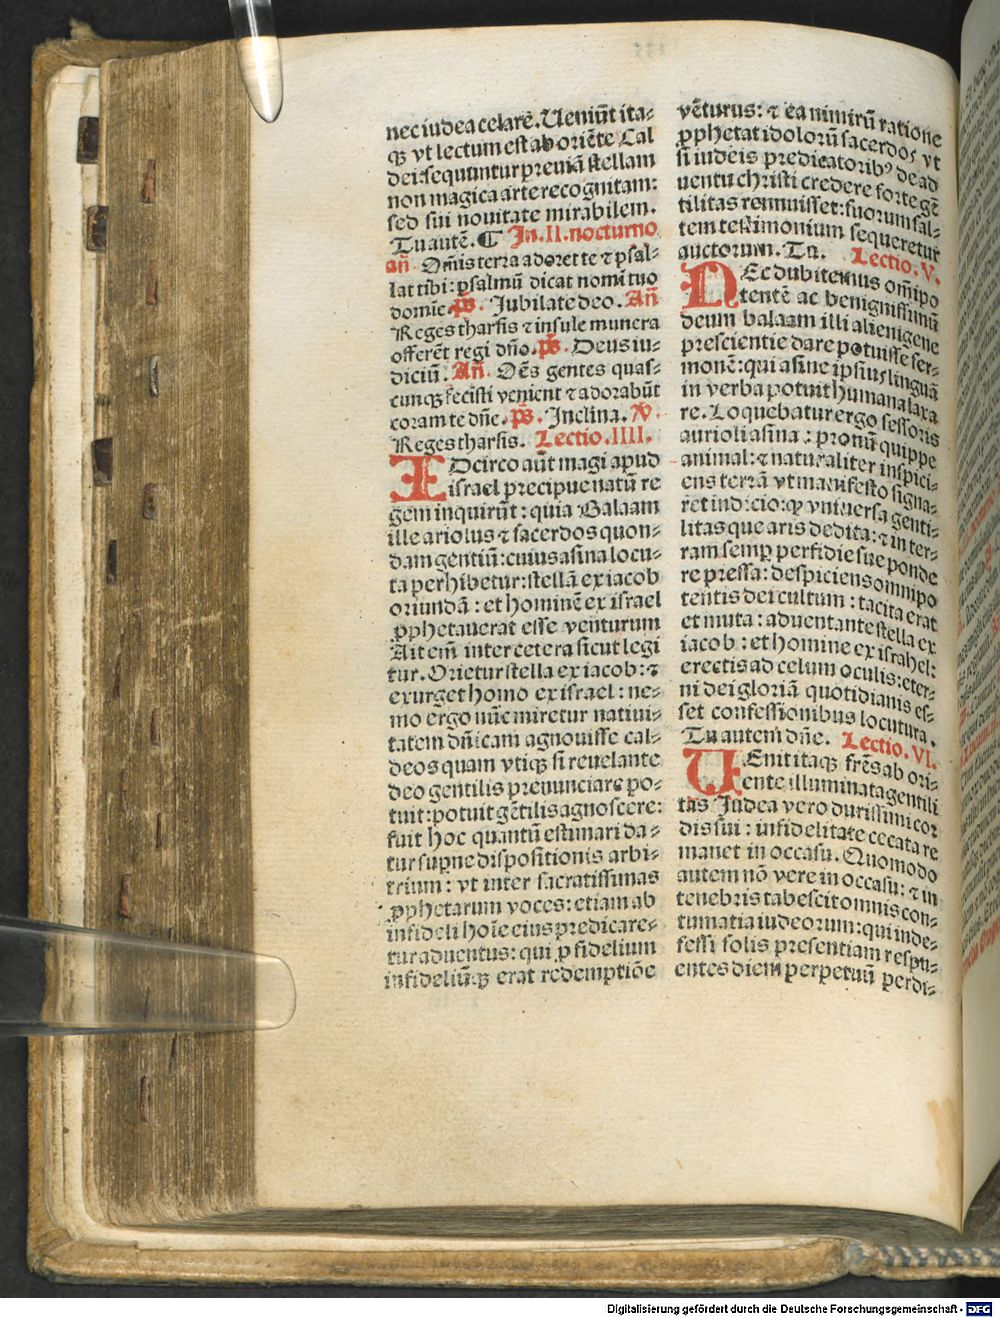 nec iudea celarē. Ueniūt ita⸗
qꝫ vt lectum est ab oriēte Cal
dei: sequuntur preuiā stellam
non magica arte recognitam:
sed sui nouitate mirabilem.
Tu autē. ¶ In .II. nocturno
añ. Om̄is terra adoret te ⁊ psal⸗
lat tibi: psalmū dicat nomī tuo
domīe. ps̄. Iubilate deo. Añ
Reges tharsis ⁊ insule munera
offerēt regi dño. ps̄. Deus iu⸗
diciū. Añ. Oēs gentes quas⸗
cunqꝫ fecisti venient ⁊ adorabūt
coram te dñe. ps̄. Inclina. ℣.
Reges tharsis. Lectio .IIII.
IDcirco aūt magi apud
israel precipue natū re
gem inquirūt: quia Balaam
ille ariolus ⁊ sacerdos quon⸗
dam gentiū: cuius asina locu⸗
ta perhibetur: stellā ex iacob
oriundā: et hominē ex israel
ꝓphetauerat esse venturum
Ait em̄ inter cetera sicut legi
tur. Orietur stella ex iacob: ⁊
exurget homo ex israel: ne⸗
mo ergo nūc miretur natiui⸗
tatem dñicam agnouisse cal⸗
deos quam vtiqꝫ si reuelante
deo gentilis prenunciare po⸗
tuit: potuit gētilis agnoscere:
fuit hoc quantū estimari da⸗
tur supne dispositionis arbi⸗
trium: vt inter sacratissimas
ꝓphetarum voces: etiam ab
infideli hoīe eius predicare⸗
tur aduentus: qui ꝓ fidelium
infideliūqꝫ erat redemptiōe
vēturus: ⁊ ea nimirū ratione
ꝓphetat idolorū sacerdos vt
si iudeis predicatoribꝰ de ad
uentu christi credere forte gē
tilitas rennuisset: suorum sal⸗
tem testimonium sequeretur
auctorum. Tu. Lectio .V.
NEc dubitemus om̄ipo
tentē ac benignissimū
deum balaam illi alienigene
prescientie dare potuisse ser⸗
monē: qui asine ipsius linguā
in verba potuit humana laxa
re. Loquebatur ergo sessoris
aurioli asina: pronū quippe
animal: ⁊ naturaliter inspici⸗
ens terrā vt manifesto signa⸗
ret indicio: qꝫ vniuersa genti⸗
litas que aris dedita: ⁊ in ter⸗
ram semꝑ perfidie sue ponde
re pressa: despiciens omnipo
tentis dei cultum: tacita erat
et muta: aduentante stella ex
iacob: et homine ex israhel:
erectis ad celum oculis: eter⸗
ni dei gloriā quotidianis es⸗
set confessionibus locutura.
Tu autem dñe. Lectio .VI.
UEnit itaqꝫ frēs ab ori⸗
ente illuminata gentili
tas Iudea vero durissimi cor
dis sui: infidelitate cecata re
manet in occasu. Quomodo
autem nō vere in occasu: ⁊ in
tenebris tabescit omnis con⸗
tumatia iudeorum: qui inde⸗
fessi solis presentiam respu⸗
entes diem perpetuū perdi⸗
Digitalisierung gefördert durch die Deutsche Forschungsgemeinschaft - DFG